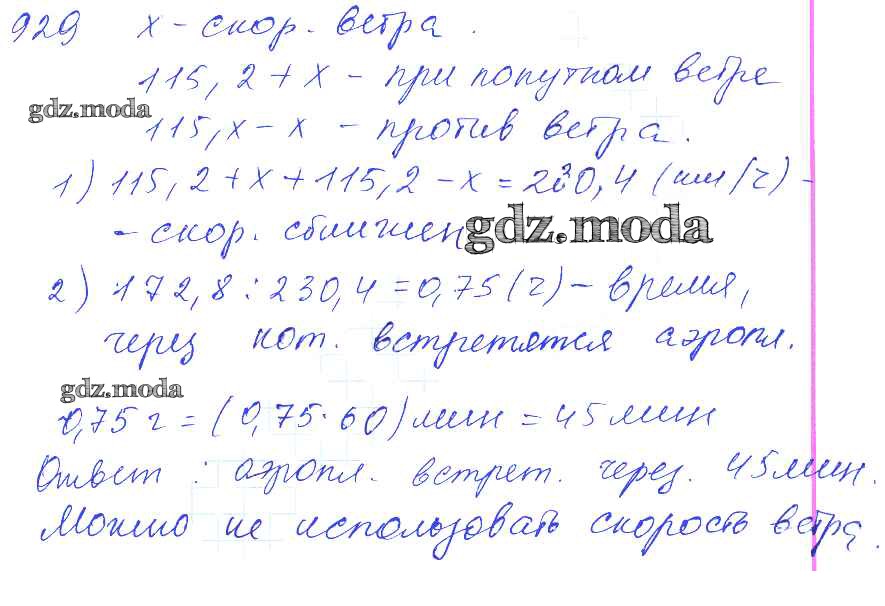 929 х - скор. ветра.
115,2 + х - при попутном ветре
gdz.moda
115,х - х - против ветра.
1) 115,2 + х + 115,2 - х = 230,4 (км/ч) -
- скор. сближен
gdz.moda
2) 172,8 : 230,4 = 0,75 (ч) - время,
через кот. встретятся аэропл.
gdz.moda
0,75 ч = (0,75·60) мин = 45 мин
Ответ : аэропл. встрет. через. 45 мин.
Можно не использовать скорость ветра.